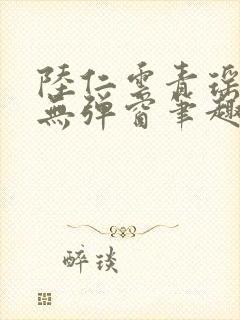 陸仁雲青瑤
無彈窗筆趣
醉琰